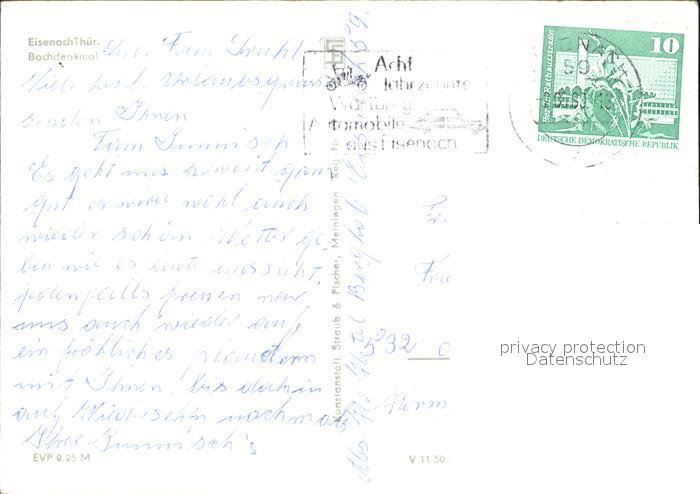 Eisenach Thür.
Bachdenkmal
Liebe Fam
Viele liebe Urlaubsgrüsse
senden Ihnen
Fam
Es geht uns soweit ganz
gut es wird wohl auch
wieder schön Wetter ge-
ben wie es heute aussieht,
jedenfalls freuen wir
uns auch wieder auf
ein fröhliches plaudern
mit Ihnen, bis dahin
auf Wiedersehn nochmals
Ihre
EVP 0,25 M
V 11 50
Kunstanstalt Straub & Fischer, Meiningen
Abs. Hotel Berghof
Acht
Jahrzehnte
Wartburg
Automobile
aus Eisenach
59
10
Berlin, Rathausstraße
DEUTSCHE DEMOKRATISCHE REPUBLIK
532
privacy protection
Datenschutz